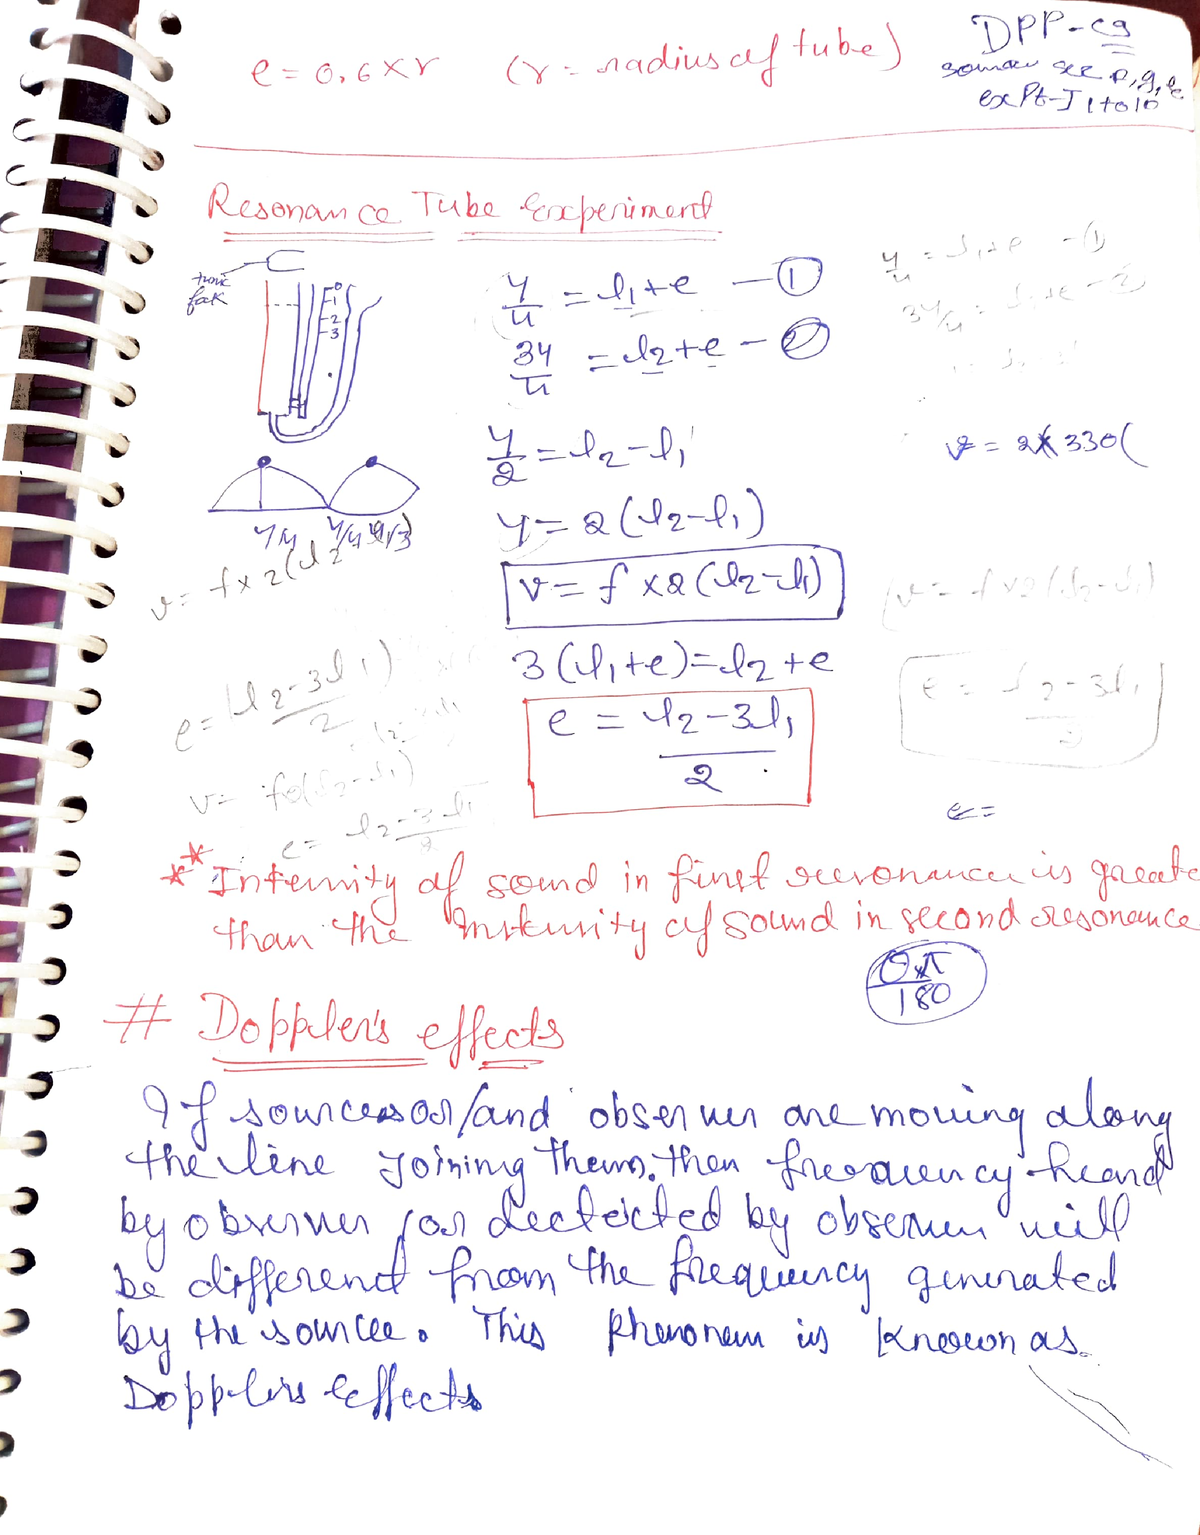 e = 0.6×r (r = radius of tube)
DPP-c9
ex Pt-I 1 to 10
Resonance Tube Experiment
tunic
fork
0
1
2
3
λ/4 = l₁+e — ①
3λ/4 = l₂+e — ②
λ/2 = l₂-l₁
λ = 2(l₂-l₁)
v = f x2(l₂-l₁)
3(l₁+e)=l₂+e
e = l₂-3l₁/2
λ/4 = l₁+e -①
3λ/4 = l₂+e -②
v = 2x330(
λ/4
v = f x 2(l₂
e = (l₂-3l₁)/2
v= f2(l₂-l₁)
e= l₂-3l₁/2
v = f x2(l₂-l₁)
e = l₂-3l₁/2
e =
** Intennity of sound in finst resonance is greate
than the intensity of sound in second resonance
θxπ/180
# Doppler's effects
If sources or/and observer are moving along
the line joining them, then frequency heard
by observer or dectected by observer will
be different from the frequency generated
by the source. This phenonem is known as
Dopplers effects